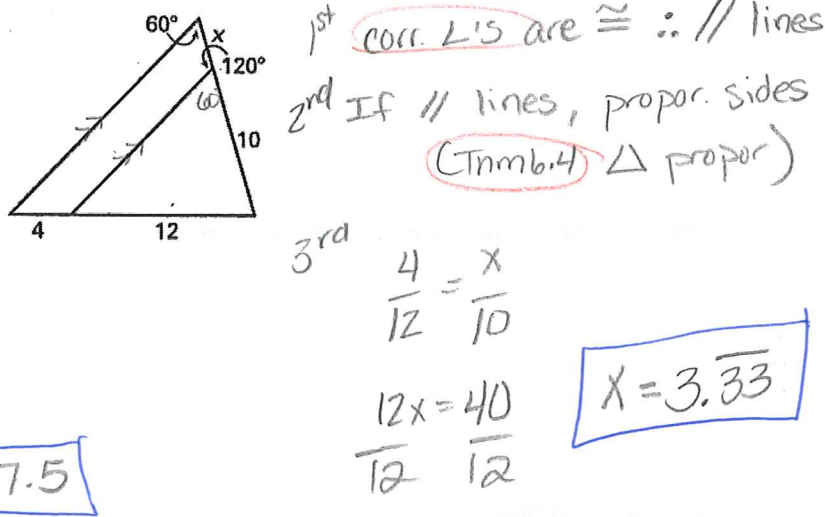 60°
x
120°
60
10
4
12
1st corr. ∠'s are ≅ ∴ // lines
2nd If // lines, propor. sides
(Tnm6.4 △ propor)
3rd
4/12 = x/10
12x = 40
12 12
x = 3.3̅3̅
7.5